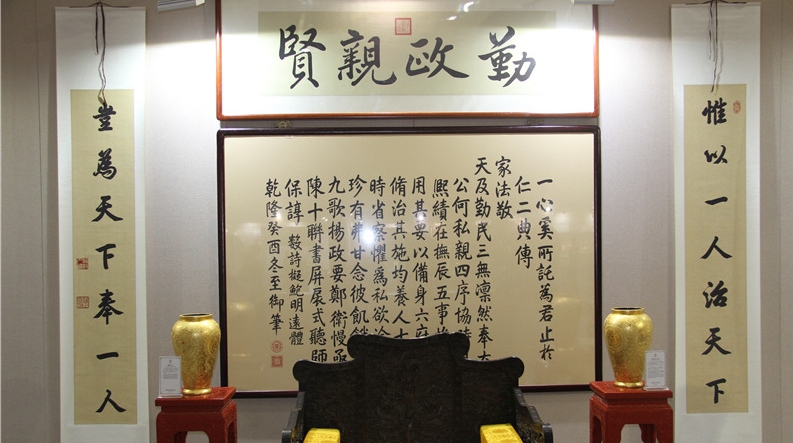 勤政親賢
惟以一人治天下
一心奚所託為君止於
仁二典傳
家法敬
天及勤民三無凜然奉
公何私親四序協
熙績在撫辰五事
用其要以備身六府
脩治其施均養人
時省察懼為私欲
珍有弗甘念彼飢
九歌揚政要鄭衛慢亟
陳十聯書屏扆式聽師
保諄 数詩擬鮑明遠體
乾隆癸酉冬至御筆
豈為天下奉一人